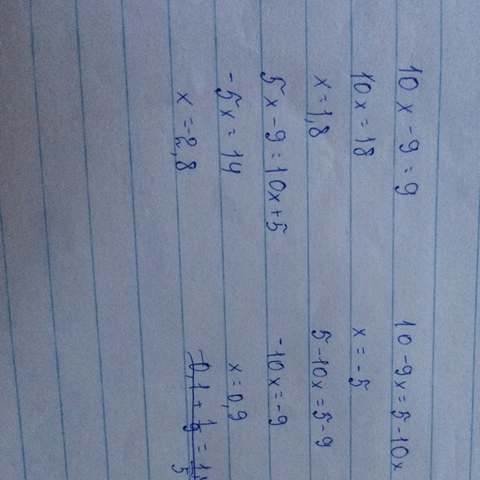 10x - 9 = 9
10x = 18
x = 1,8
5x - 9 = 10x + 5
-5x = 14
x = -2,8
10 - 9x = 5 - 10x
x = -5
5 - 10x = 5 - 9
-10x = -9
x = 0,9